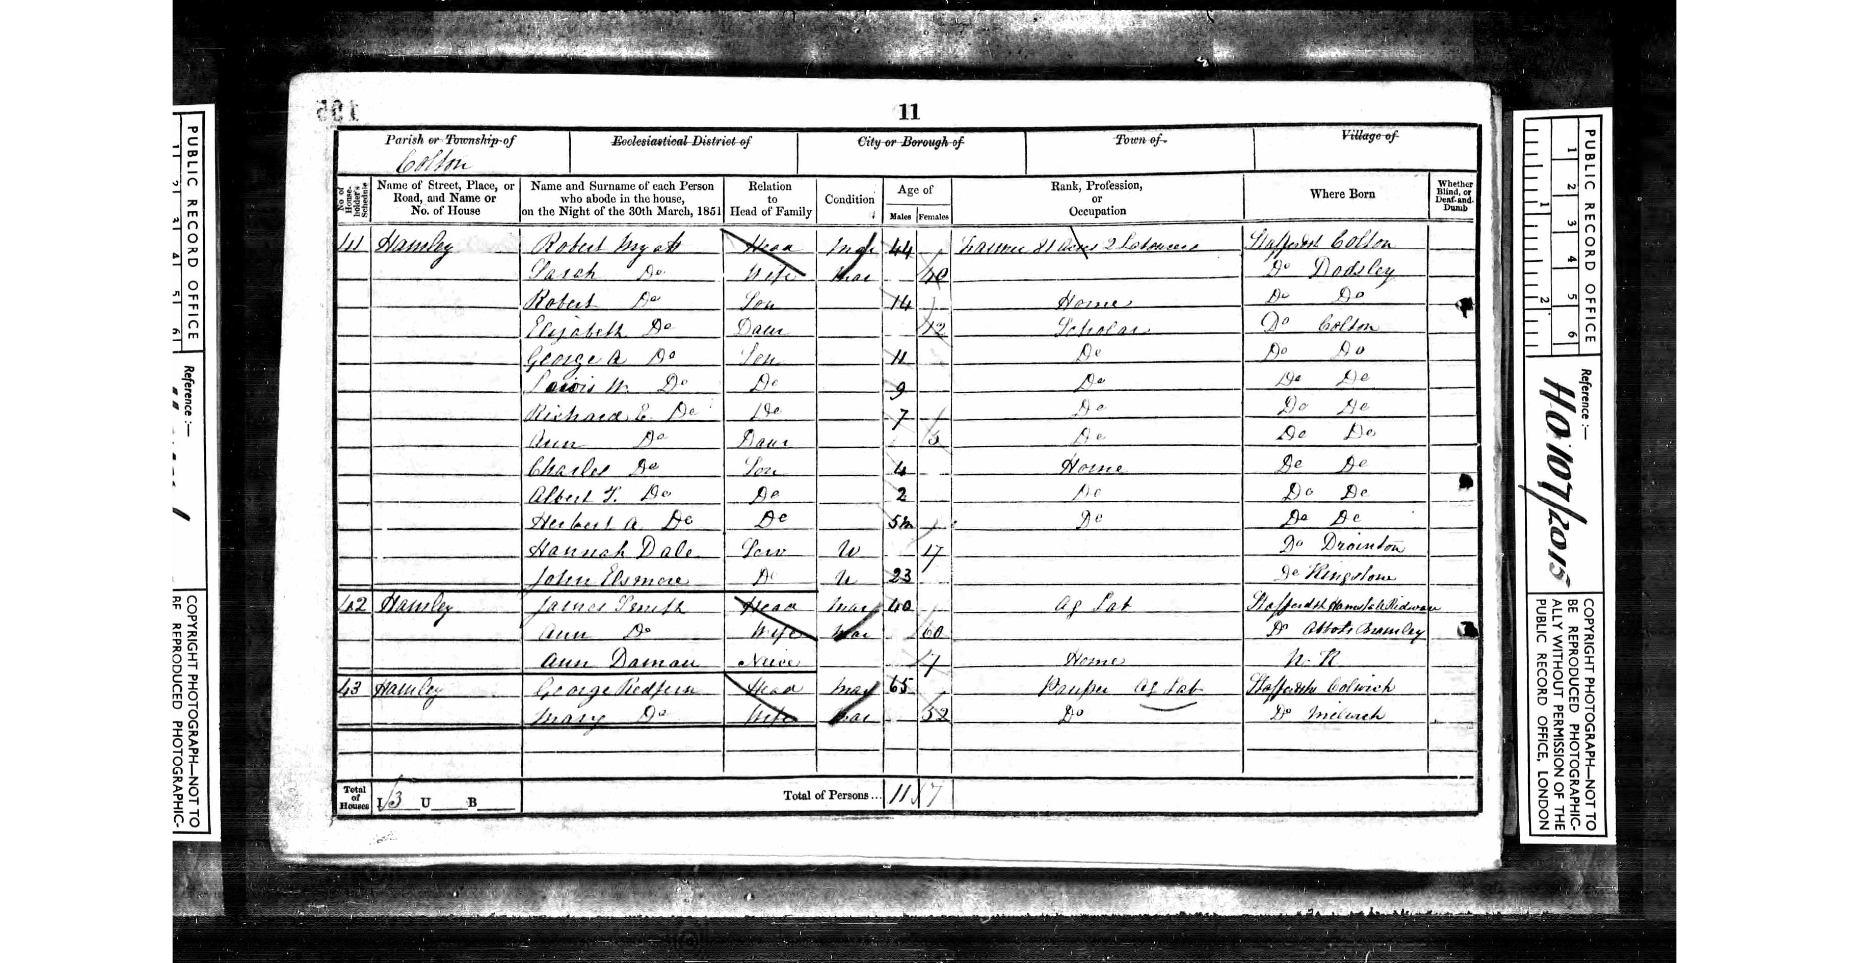 11
Parish or Township of
Ecclesiastical District of
City or Borough of
Town of
Village of
Colton
No. of House-holder's Schedule
Name of Street, Place, or Road, and Name or No. of House
Name and Surname of each Person who abode in the house, on the Night of the 30th March, 1851
Relation to Head of Family
Condition
Age of
Males
Females
Rank, Profession, or Occupation
Where Born
Whether Blind, or Deaf-and-Dumb
41 Hamley Robert Myatt Head Mar 44 Farmer Acres 2 Labourers Staffordsh Colton
Sarah Do Wife Mar 40 Do Dodsley
Robert Do Son 14 Home Do Do
Elizabeth Do Daur 12 Scholar Do Colton
George A Do Son 11 Do Do Do
W. Do Do 9 Do Do Do
Richard E. Do Do 7 Do Do Do
Ann Do Daur 5 Do Do Do
Charles Do Son 4 Home Do Do
Albert F. Do Do 2 Do Do Do
Herbert A. Do Do 5m Do Do Do
Hannah Dale Serv U 17 Do Drointon
John Elsmore Do U 23 Do Kingstone
42 Hamley James Smith Head Mar 40 Ag Lab Staffordsh Hamstall Ridware
Ann Do Wife Mar 60 Do Abbots Bromley
Ann Daman Niece 7 Home N. K
43 Hamley George Redfern Head Mar 65 Pauper Ag Lab Staffordsh Colwich
Mary Do Wife Mar 52 Do Do Milwich
Total of Houses I 3 U B
Total of Persons... 11 7
PUBLIC RECORD OFFICE
Reference :-
COPYRIGHT PHOTOGRAPH—NOT TO
BE REPRODUCED PHOTOGRAPHIC-
1 2 3 4 5 6
1 2
PUBLIC RECORD OFFICE
Reference :-
HO 107/2015
COPYRIGHT PHOTOGRAPH—NOT TO
BE REPRODUCED PHOTOGRAPHIC-
ALLY WITHOUT PERMISSION OF THE
PUBLIC RECORD OFFICE, LONDON